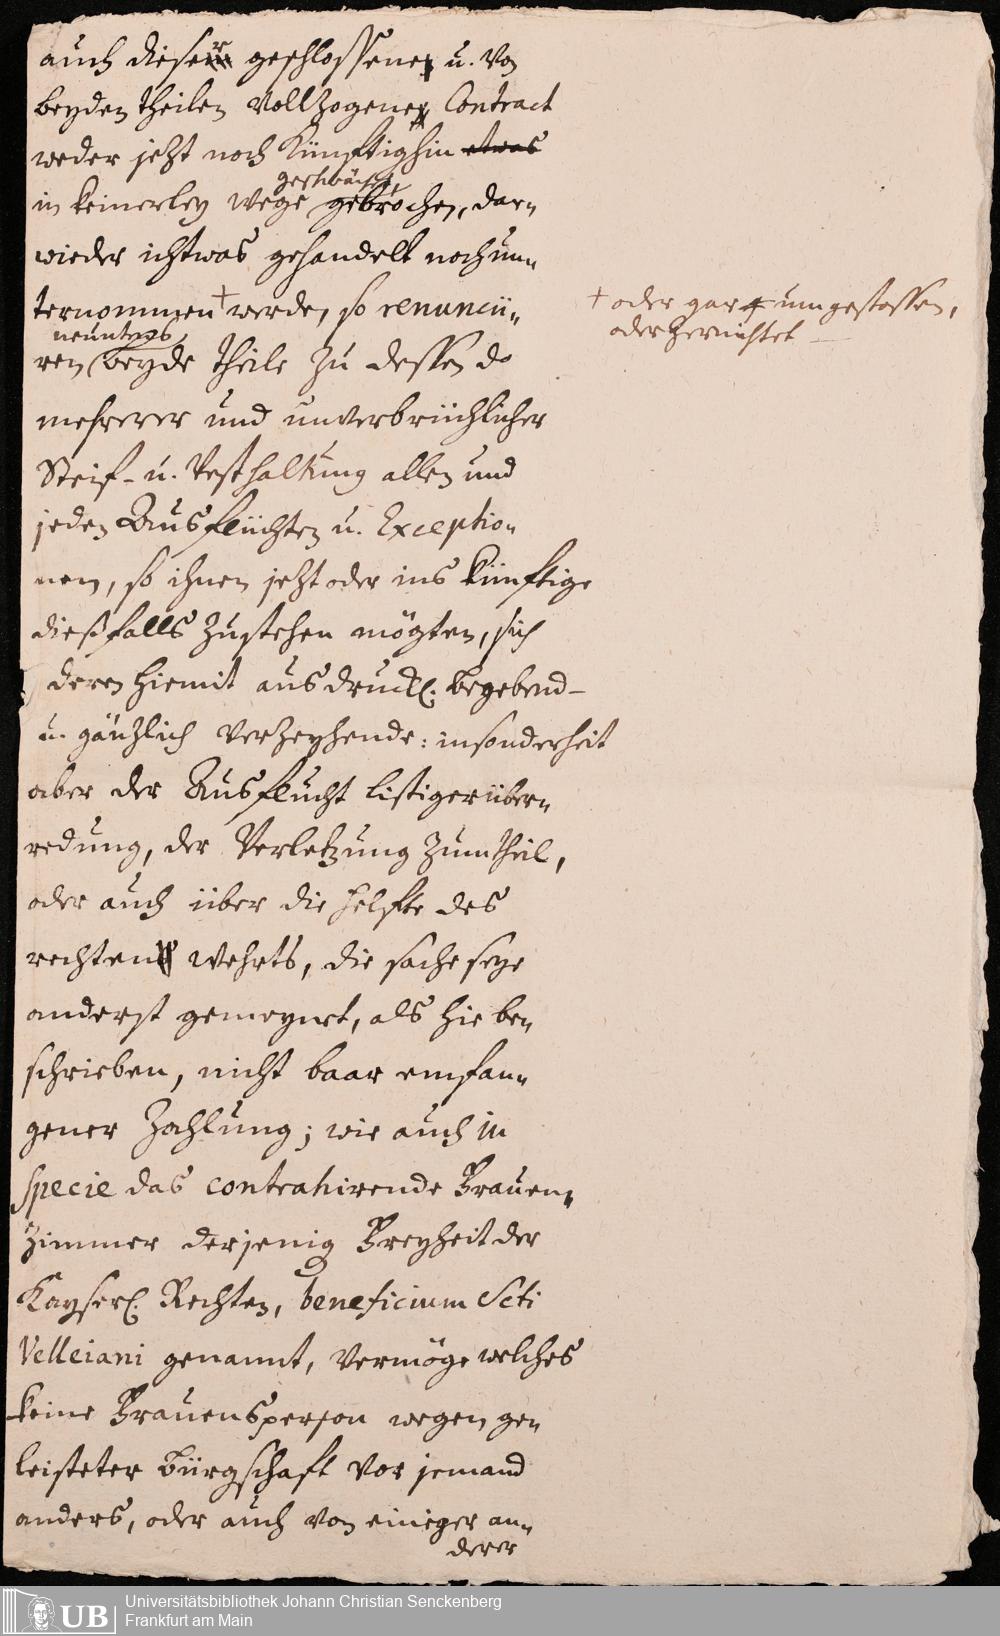 auch dieser geschlossene u. von
beyden theilen vollzogene Contract
weder jetzt noch künfftighin etwas
geschwächet
in keinerley wege gebrochen, dar-
wieder ichtwas gehandelt noch un-
ternommen + werde, so renuncii-
+ oder gar umgestossen,
oder zernichtet
neuntens
ren (beyde theile zu dessen do
mehrerer und unverbrüchlicher
Steif- u. Vesthaltung allen und
jeden Ausflüchten u. Exceptio-
nen, so ihnen jetzt oder ins künftige
dießfalls zustehen mögten, sich
deren hiemit ausdruckl. begebend-
u. gäntzlich verzeyhende: insonderheit
aber der Ausflucht listiger über-
redung, der Verletzung zum theil,
oder auch über die helfte des
rechten wehrts, die sache seye
anderst gemeynet, als hie be-
schrieben, nicht baar empfan-
gener Zahlung; wie auch in
specie das contrahirende Frauen-
zimmer derjenig Freyheit der
Kayserl. Rechten, beneficium Scti
Velleiani genannt, vermöge welches
keine Frauensperson wegen ge-
leisteter bürgschaft vor jemand
anders, oder auch von einiger an-
derer
UB
Universitätsbibliothek Johann Christian Senckenberg
Frankfurt am Main